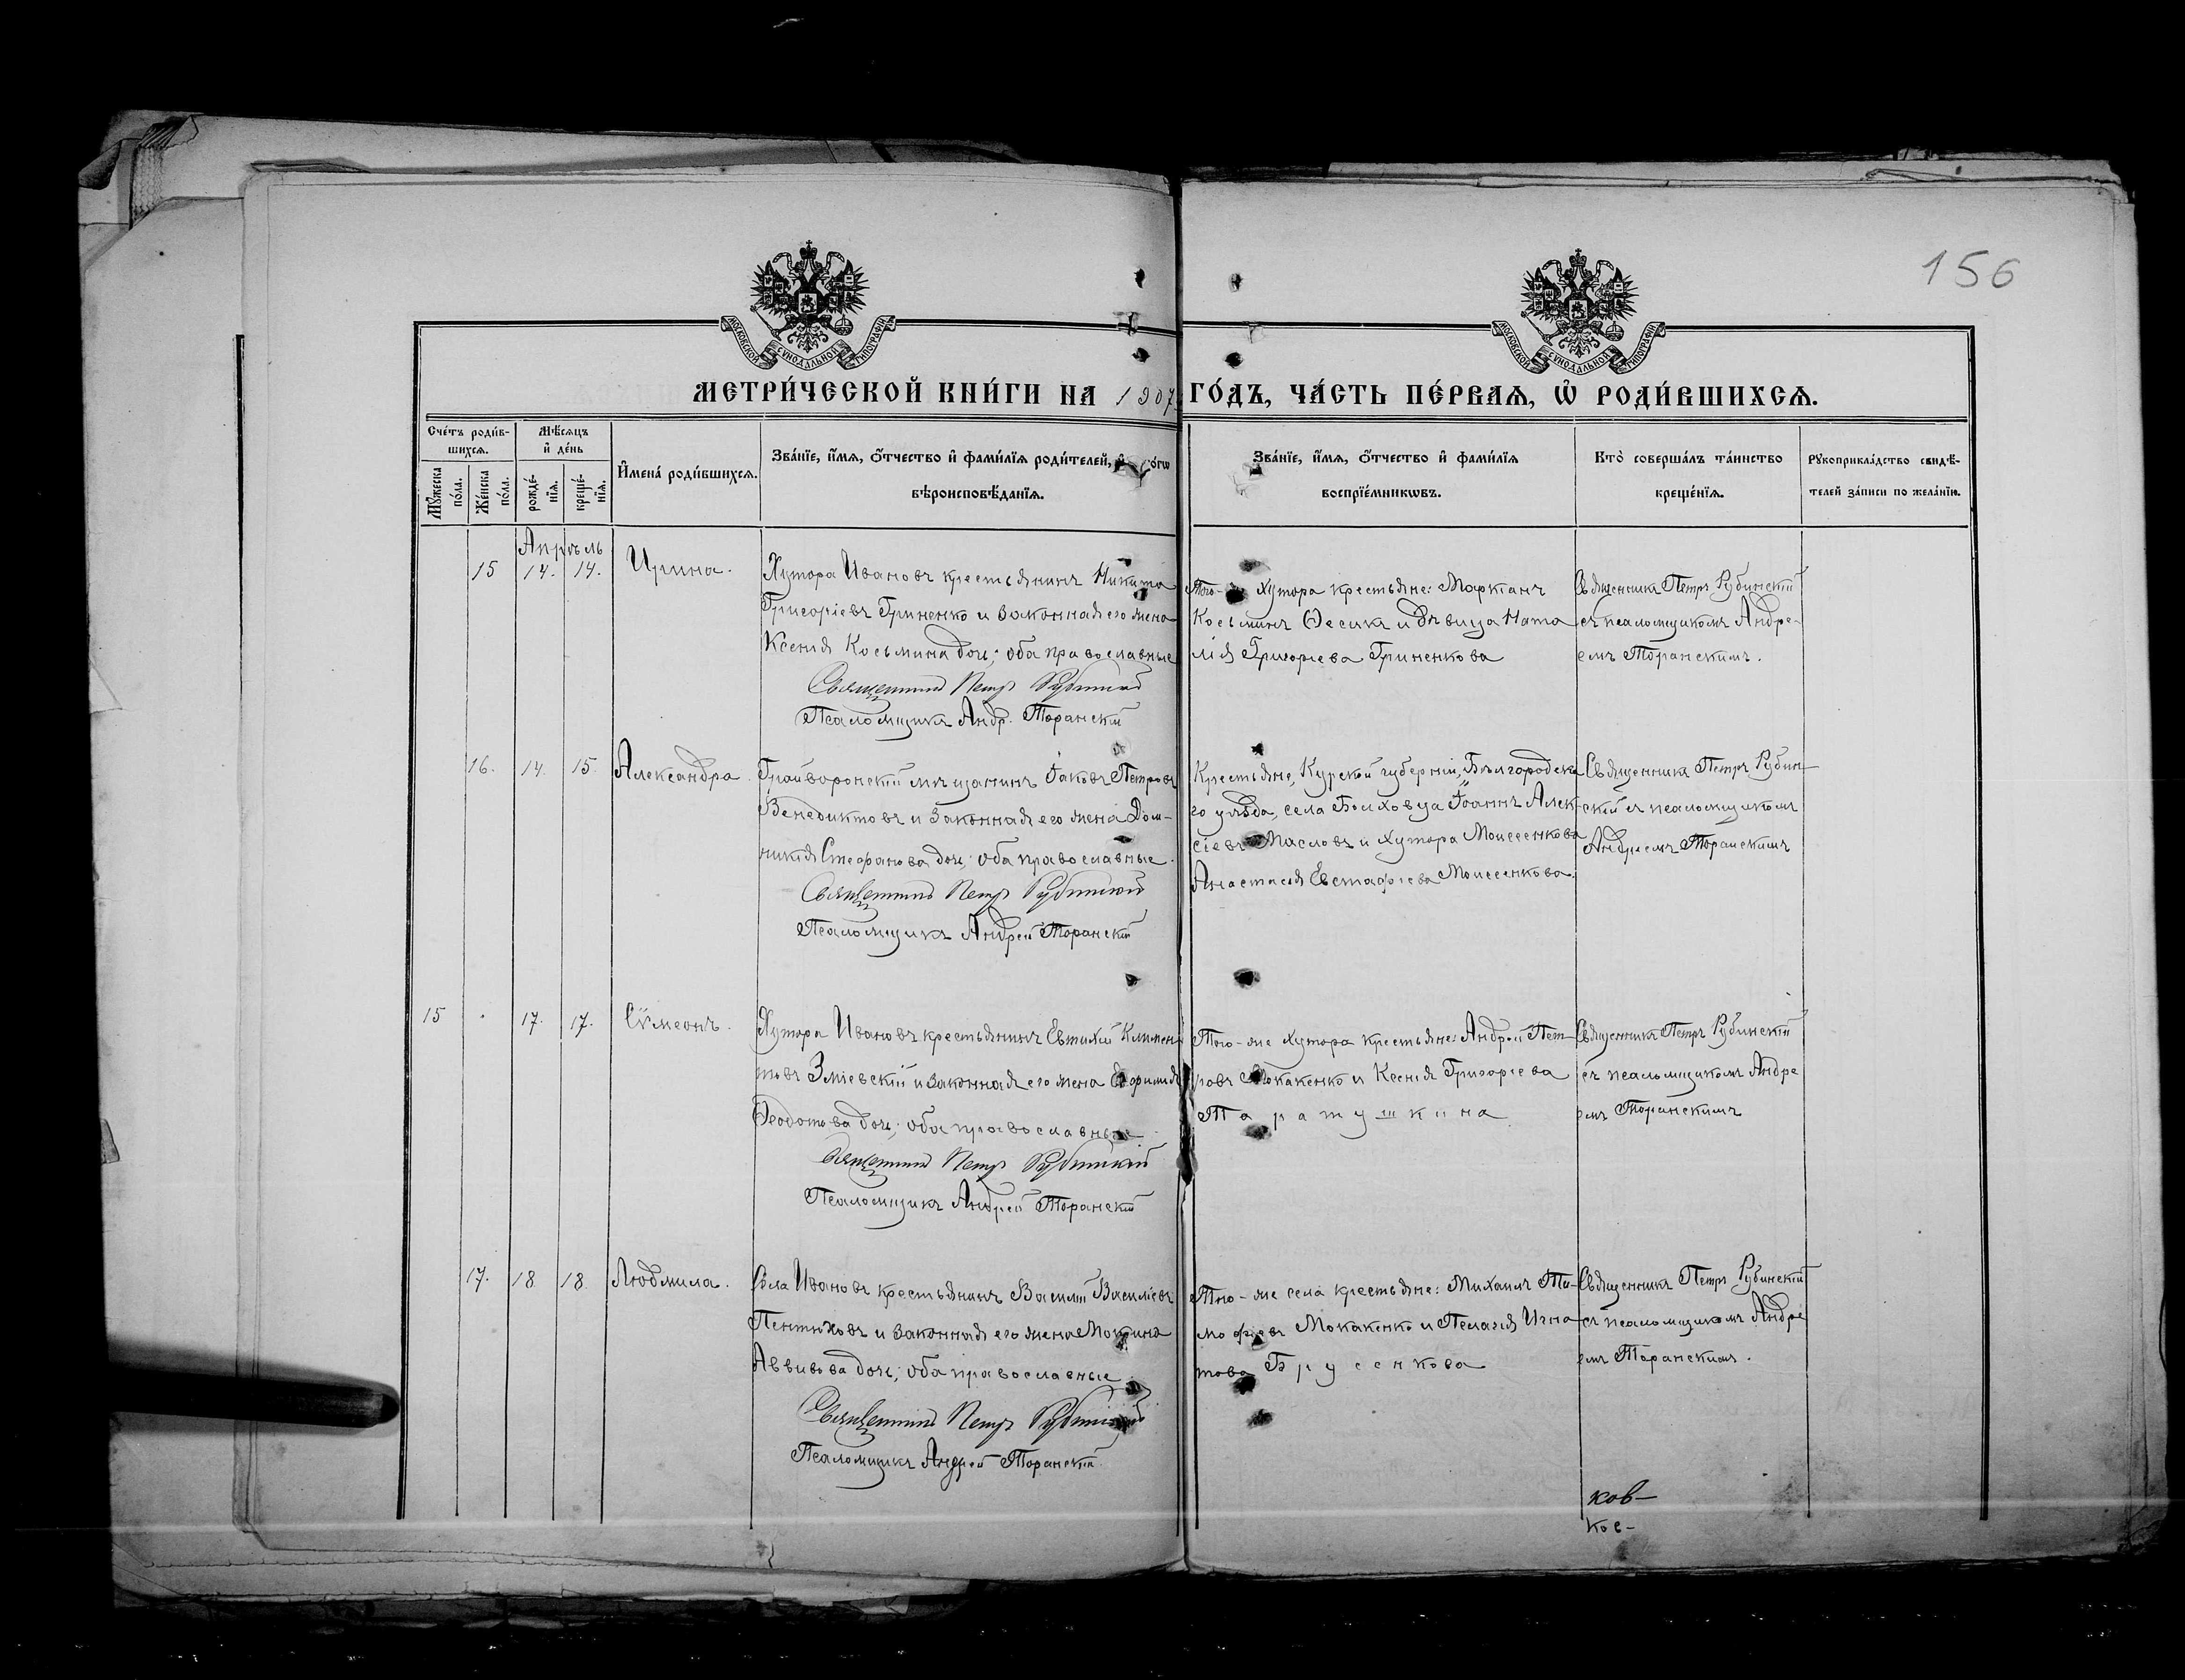 156
МОСКОВСКОЙ СУНОДАЛЬНОЙ ТИПОГРАФІИ
МОСКОВСКОЙ СУНОДАЛЬНОЙ ТИПОГРАФІИ
МЕТРИ́ЧЕСКОЙ КНИ́ГИ НА 1907 ГО́ДЪ, ЧА́СТЬ ПЕ́РВАЯ, Ѡ҆ РОДИ́ВШИХСѦ.
Сче́тъ роди́в-
шихсѧ.
Мѣ́сѧцъ
и҆ де́нь
Мꙋ́жеска
по́ла.
Же́нска
по́ла.
рожде́-
нїѧ.
креще́-
нїѧ.
И҆мена̀ роди́вшихсѧ.
Зва́нїе, и҆́мѧ, ѻ҆́тчество и҆ фами́лїѧ роди́телей,
вѣроисповѣ́данїѧ.
Зва́нїе, и҆́мѧ, ѻ҆́тчество и҆ фами́лїѧ
воспрїе́мникѡвъ.
Кто̀ соверша́лъ та́инство
креще́нїѧ.
Рꙋкоприкла́дство свидѣ́-
телей за́писи по жела́нїю.
Апрѣль
15 14. 14. Ирина.
Хутора Ивановъ крестьянинъ Никита
Григоріевъ Гриненко и законная его жена
Ксенія Косьмина дочь; оба православные
Священникъ Петръ Рубинскій
Псаломщикъ Андр. Торанскій
Того-же хутора крестьяне: Маркіанъ
Косьминъ Ѳесикъ и дѣвица Ната
лія Григорьева Гриненкова
Священникъ Петръ Рубинскій
съ псаломщикомъ Андре-
емъ Торанскимъ.
16. 14. 15. Александра.
Грайворонскій мѣщанинъ Іаковъ Петровъ
Венедиктовъ и законная его жена Дом-
никія Стефанова дочь; оба православные.
Священникъ Петръ Рубинскій
Псаломщикъ Андрей Торанскій
Крестьяне, Курской губерніи, Бѣлгородска
го уѣзда, села Болховца Іоаннъ Алек-
сіевъ Масловъ и хутора Моисеенкова
Анастасія Евстафіева Моисеенкова.
Священникъ Петръ Рубин-
скій съ псаломщикомъ
Андреемъ Торанскимъ
15 17. 17. Сѵмеонъ.
Хутора Ивановъ крестьянинъ Евтихій Климен-
товъ Зміевскій и законная его жена Евфимія
Ѳеодотова дочь; оба православные.
Священникъ Петръ Рубинскій
Псаломщикъ Андрей Торанскій
Того-же хутора крестьяне: Андрей Пет-
ровъ Мокакенко и Ксенія Григоріева
Таратушкина
Священникъ Петръ Рубинскій
съ псаломщикомъ Андре
емъ Торанскимъ
17. 18 18. Людмила.
Села Ивановъ крестьянинъ Василій Василіевъ
Пентюховъ и законная его жена Мокрина
Аввивова дочь; оба православные
Священникъ Петръ Рубинскій
Псаломщикъ Андрей Торанскій.
Того-же села крестьяне: Михаилъ Ти-
мофіевъ Мокакенко и Пелагія Игна
това Брусенкова
Священникъ Петръ Рубинскій
съ псаломщикомъ Андре
емъ Торанскимъ.
ков-
кос-